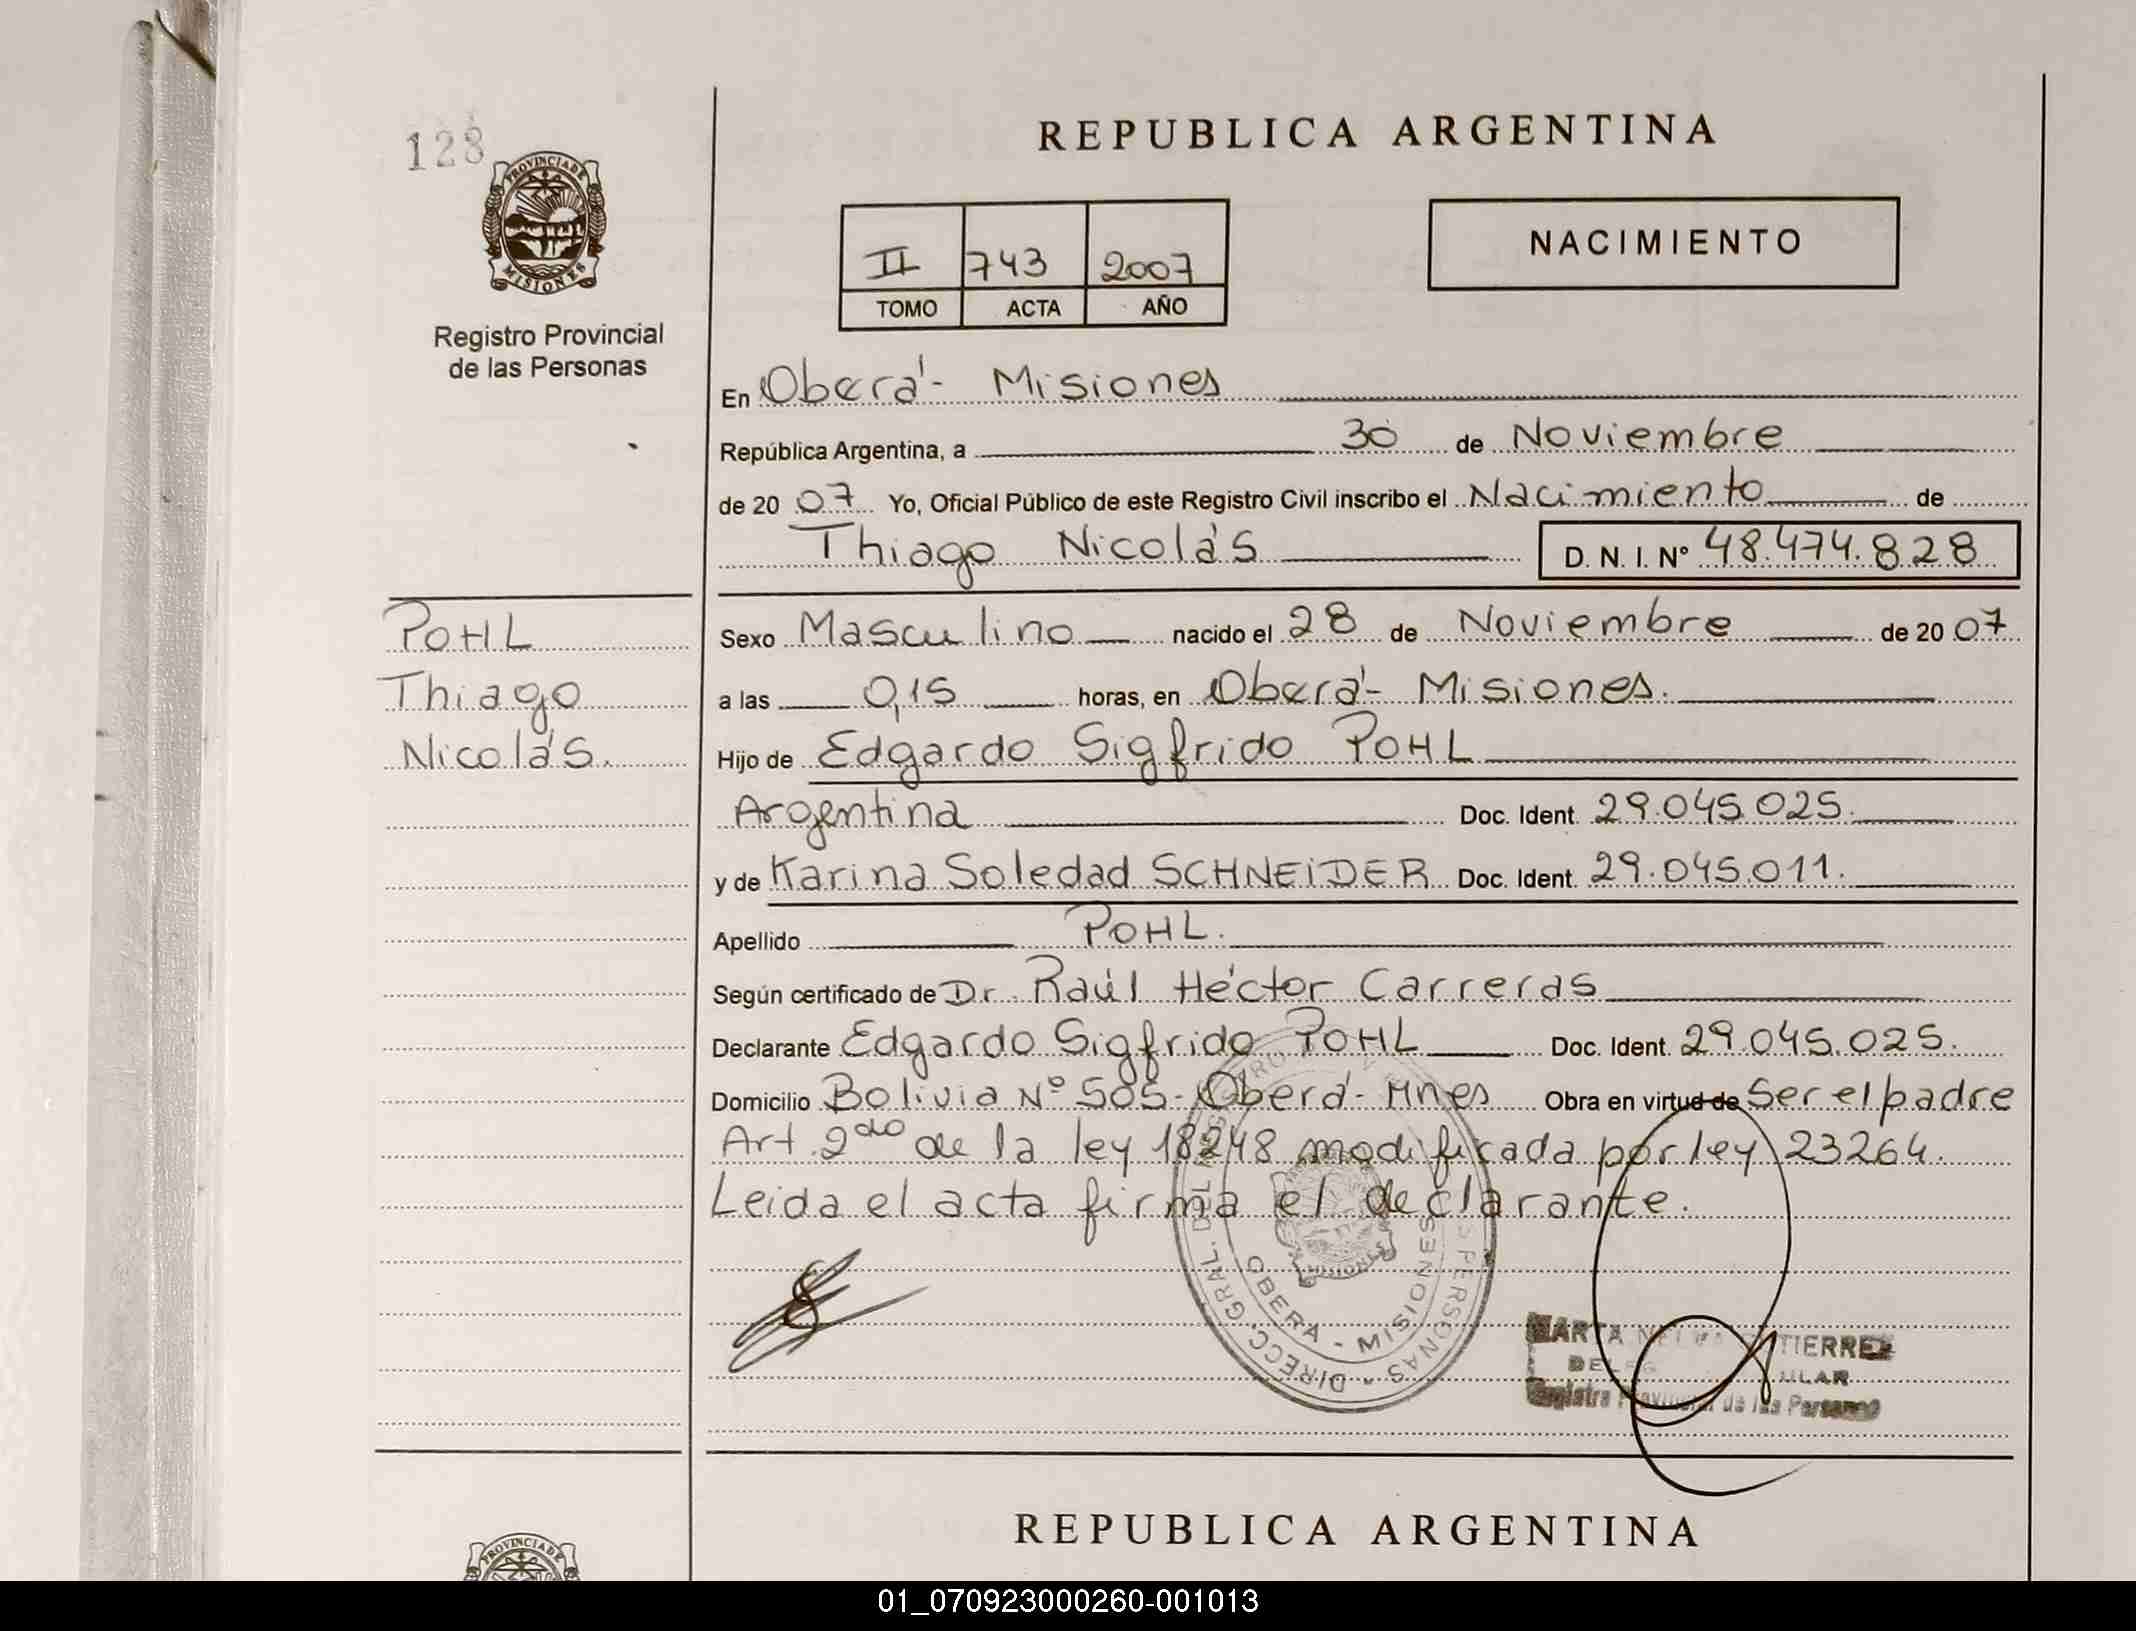 128
PROVINCIA DE
MISIONES
Registro Provincial
de las Personas
REPUBLICA ARGENTINA
II 743 2007
TOMO ACTA AÑO
NACIMIENTO
En Oberá - Misiones
República Argentina, a 30 de Noviembre
de 20 07 Yo, Oficial Público de este Registro Civil inscribo el Nacimiento de
Thiago Nicolás D. N. I. Nº 48.474.828
POHL
Thiago
Nicolás.
Sexo Masculino nacido el 28 de Noviembre de 20 07
a las 0,15 horas, en Oberá - Misiones.
Hijo de Edgardo Sigfrido POHL
Argentina Doc. Ident. 29.045.025.
y de Karina Soledad SCHNEIDER Doc. Ident. 29.045.011.
Apellido POHL.
Según certificado de Dr. Raúl Héctor Carreras
Declarante Edgardo Sigfrido POHL Doc. Ident. 29.045.025.
Domicilio Bolivia Nº 505 - Oberá - Mnes Obra en virtud de Ser el padre
Art. 2do de la ley 18248 modificada por ley 23264.
Leida el acta firma el declarante.
DIRECC. GRAL. PERSONAS
OBERA - MISIONES
MISIONES
MARTA
Registro Provincial de las Personas
REPUBLICA ARGENTINA
PROVINCIA DE
01_070923000260-001013